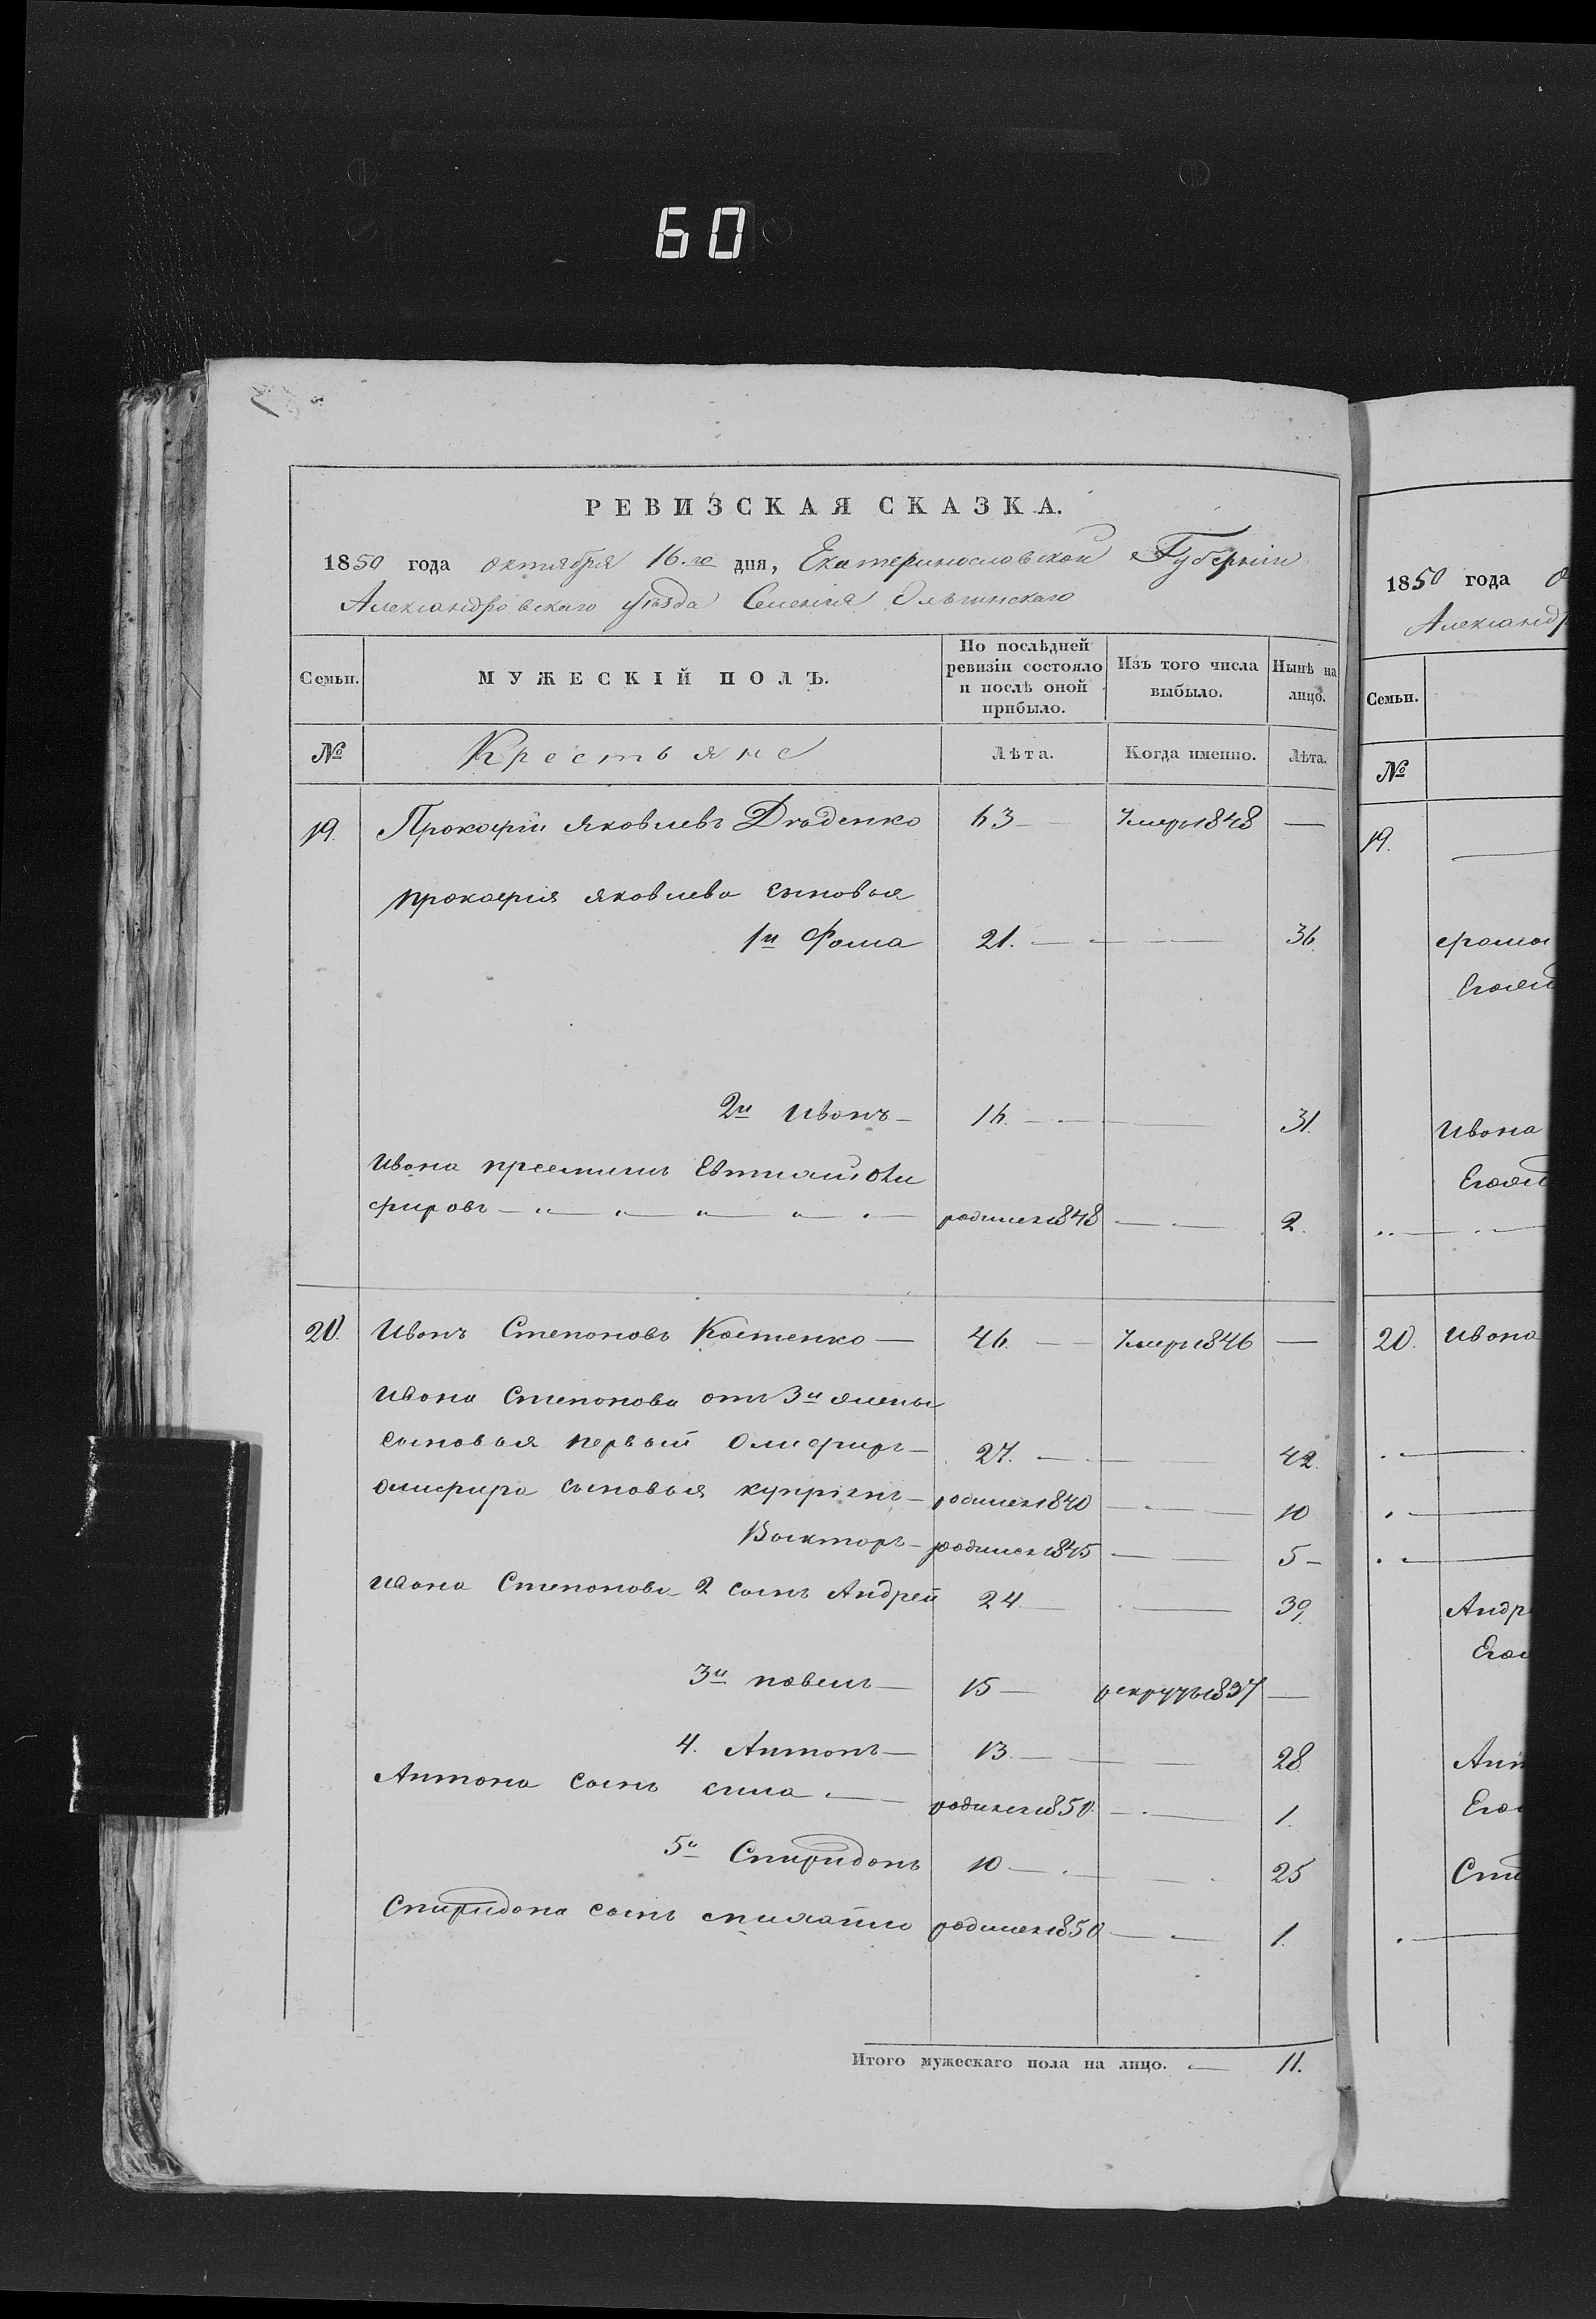 60
РЕВИЗСКАЯ СКАЗКА.
1850 года октября 16.го дня, Екатеринославской Губерніи
Александровскаго уѣзда Селенія Ольгинскаго
Семьи. МУЖЕСКІЙ ПОЛЪ. По послѣдней ревизіи состояло и послѣ оной прибыло. Изъ того числа выбыло. Нынѣ на лицо.
№ Крестьяне Лѣта. Когда именно. Лѣта.
19. Прокофій Яковлевъ 63 — Умеръ 1848 —
Прокофія Яковлева сыновья
1й Фома 21. — 36.
2й Иванъ — 16. — 31.
Ивана Евтихій Оли
фировъ — родился 1848 — 2.
20. Иванъ Степановъ Костенко — 46. — Умеръ 1846 —
Ивана Степанова отъ 3й жены
сыновья первый Олифиръ — 27. — 42.
Олифира сыновья Купріянъ — родился 1840 — 10
Викторъ — родился 1845 — 5 —
Ивана Степанова 2 сынъ Андрей 24 — 39.
3й Павелъ — 15 — рекрутъ 1837 —
4. Антонъ — 13. — 28.
Антона сынъ — родился 1850. — 1.
5й Спиридонъ 10 — 25
Спиридона сынъ родился 1850 — 1.
Итого мужескаго пола на лицо. — 11.
1850 года О
Александр
Семьи.
№
19.
Ивана
20. Ивана
Андр
Ант